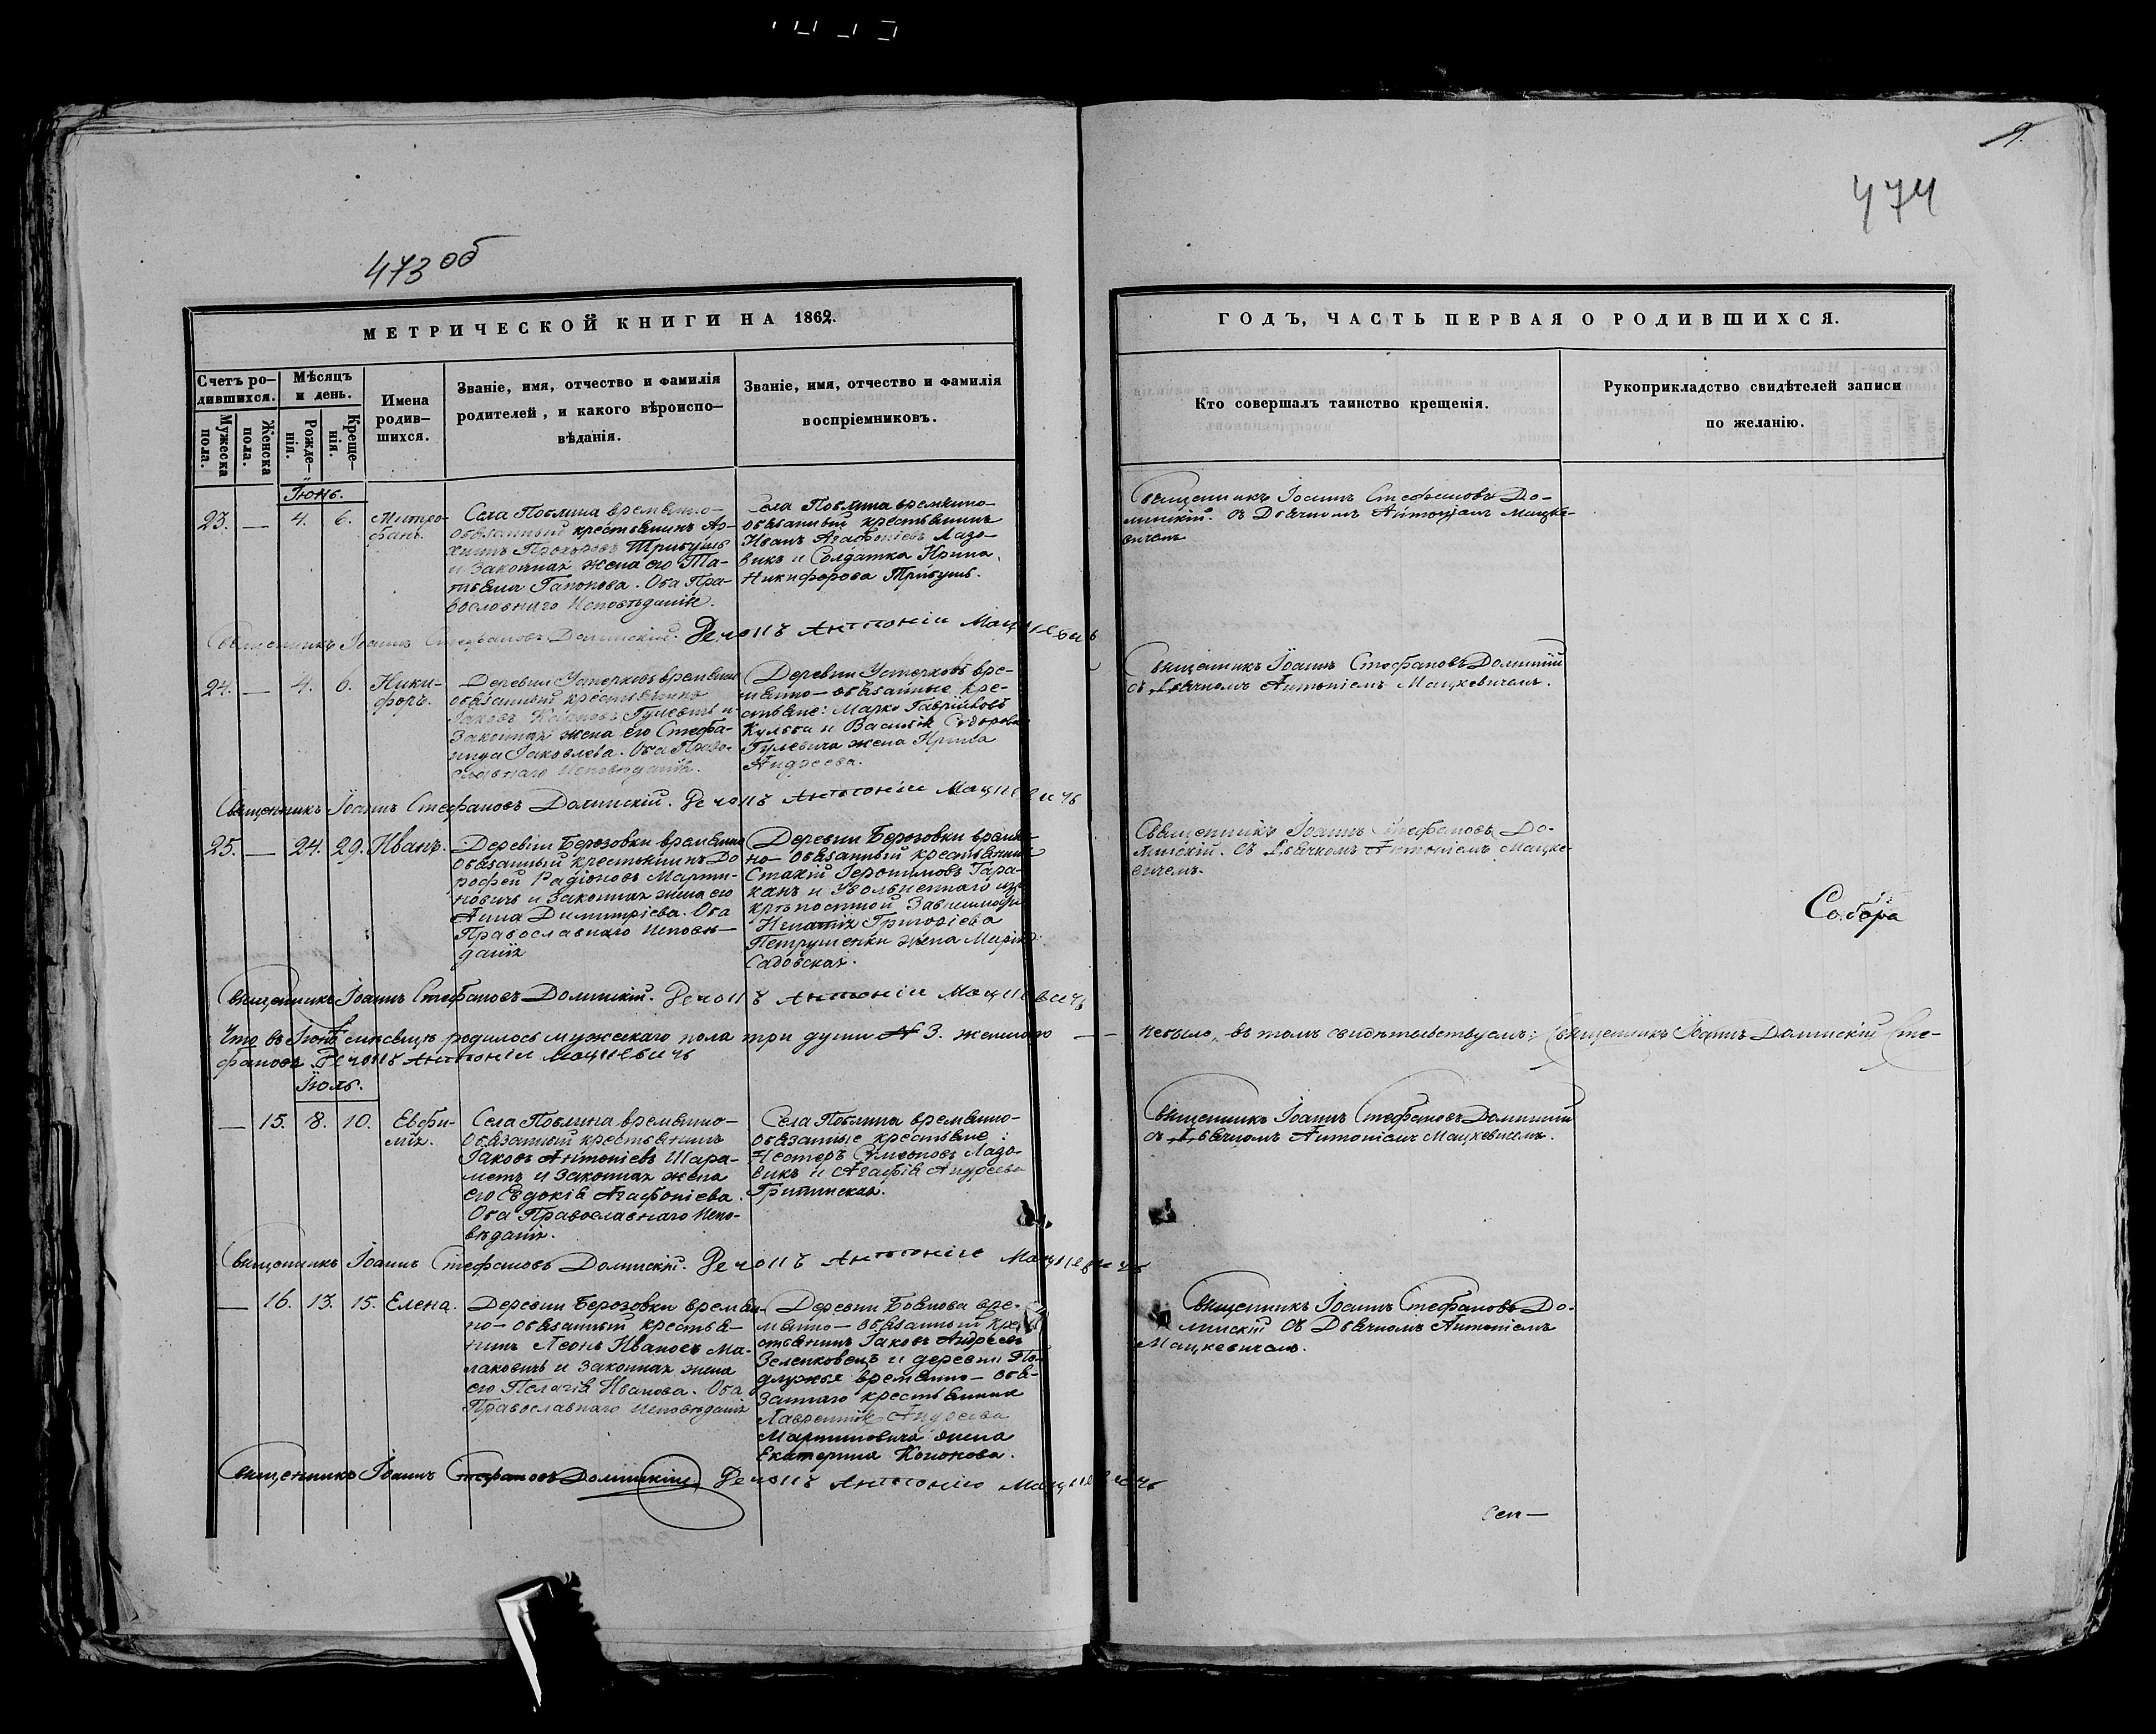 9.
474
473 об
МЕТРИЧЕСКОЙ КНИГИ НА 1862.
ГОДЪ, ЧАСТЬ ПЕРВАЯ О РОДИВШИХСЯ.
Счетъ ро-
дившихся.
Мужеска
пола.
Женска
пола.
Мѣсяцъ
и день.
Рожде-
нія.
Креще-
нія.
Имена
родив-
шихся.
Званіе, имя, отчество и фамилія
родителей, и какого вѣроиспо-
вѣданія.
Званіе, имя, отчество и фамилія
воспріемниковъ.
Кто совершалъ таинство крещенія.
Рукоприкладство свидѣтелей записи
по желанію.
Іюнь.
23. — 4. 6. Митро-
фанъ.
Села временно-
обязанный крестьянинъ
Прохоровъ Трибушъ
и законная жена его Та-
тьяна Гапонова. Оба Пра-
вославнаго Исповѣданія.
Села временно-
обязанный крестьянинъ
Иванъ Агафоніевъ Лазо-
викъ и Солдатка Ирина
Никифорова Трибушъ.
Священникъ Іоаннъ Стефановъ До-
линскій. съ Дьячкомъ Антоніемъ Мацке-
вичемъ
Священникъ Іоаннъ Стефановъ Долинскій. Дечокъ Антоній Мацкевичъ
24. — 4. 6. Ники-
форъ.
Деревни временно
обязанный крестьянинъ
Іаковъ Карповъ Гулевичъ и
законная жена его Стефа-
нида Іаковлева. Оба Право-
славнаго Исповѣданія.
Деревни вре-
менно-обязанные кре-
стьяне: Марко Гавріиловъ
Кульба и Василія Сидорова
Гулевича жена Ирина
Андреева.
Священникъ Іоаннъ Стефановъ Долинскій
съ Дьячкомъ Антоніемъ Мацкевичемъ.
Священникъ Іоаннъ Стефановъ Долинскій. Дечокъ Антоній Мацкевичъ
25. — 24. 29. Иванъ.
Деревни Березовки временно
обязанный крестьянинъ До
рофей Радіоновъ Марти-
новичъ и законная жена его
Анна Димитріева. Оба
Православнаго Исповѣ-
данія
Деревни Березовки времен-
но-обязанный крестьянинъ
Стахій Іеронимовъ Тара-
канъ и Уволненнаго изъ
крѣпостной Зависимости
Игнатія Григоріева
Петрушенки жена Марія
Садовская.
Священникъ Іоаннъ Стефановъ До-
линскій. съ Дьячкомъ Антоніемъ Мацке-
вичемъ.
Собора
Священникъ Іоаннъ Стефановъ Долинскій. Дечокъ Антоній Мацкевичъ
Что въ Іюнѣ мѣсяцѣ родилось мужескаго пола три души № 3. женскаго — небыло, въ томъ свидѣтельствуемъ: Священникъ Іоаннъ Долинскій Сте-
фановъ Дечокъ Антоній Мацкевичъ
Іюль.
— 15. 8. 10. Евфи-
мія.
Села временно-
обязанный крестьянинъ
Іаковъ Антоніевъ Шара-
метъ и законная жена
его Евдокія Агафоніева.
Оба Православнаго Испо-
вѣданія.
Села временно-
обязанные крестьяне:
Несторъ Симеоновъ Лазо-
викъ и Агафія Андреева
Священникъ Іоаннъ Стефановъ Долинскій
съ Дьячкомъ Антоніемъ Мацкевичемъ.
Священникъ Іоаннъ Стефановъ Долинскій. Дечокъ Антоній Мацкевичъ
— 16. 13. 15. Елена.
Деревни Березовки времен-
но-обязанный крестья-
нинъ Леонъ Ивановъ Ма-
лаховичъ и законная жена
его Пелагія Иванова. Оба
Православнаго Исповѣданія
Деревни вре-
менно-обязанный кре-
стьянинъ Іаковъ Андреевъ
Зеленковецъ и деревни По-
лужья временно-обя-
заннаго крестьянина
Лаврентія Андреева
Мартиновича жена
Екатерина Кононова.
Священникъ Іоаннъ Стефановъ До-
линскій съ Дьячкомъ Антоніемъ
Мацкевичемъ.
Священникъ Іоаннъ Стефановъ Долинскій Дечокъ Антоній Мацкевичъ
Сен—